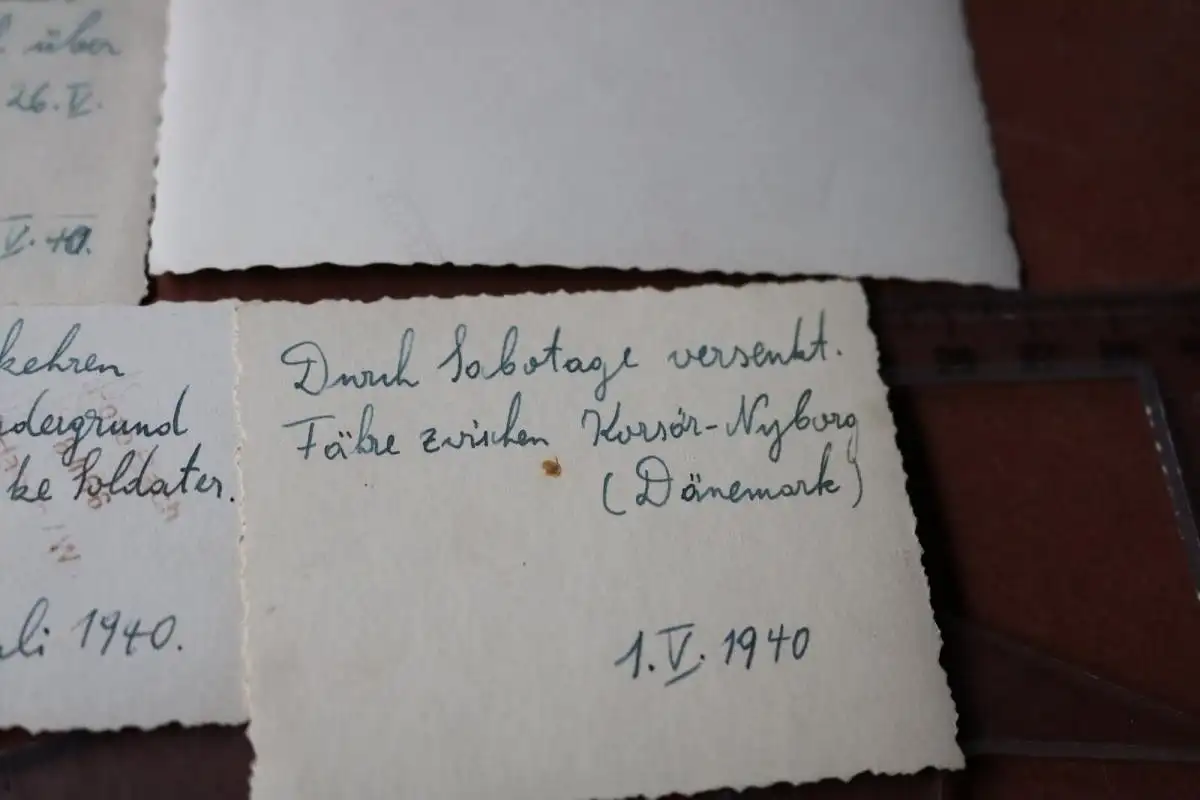 über
26. V.
V. 40.
kehren
dergrund
ke Soldaten.
li 1940.
Durch Sabotage versenkt.
Fähre zwischen Korsör-Nyborg
(Dänemark)
1. V. 1940